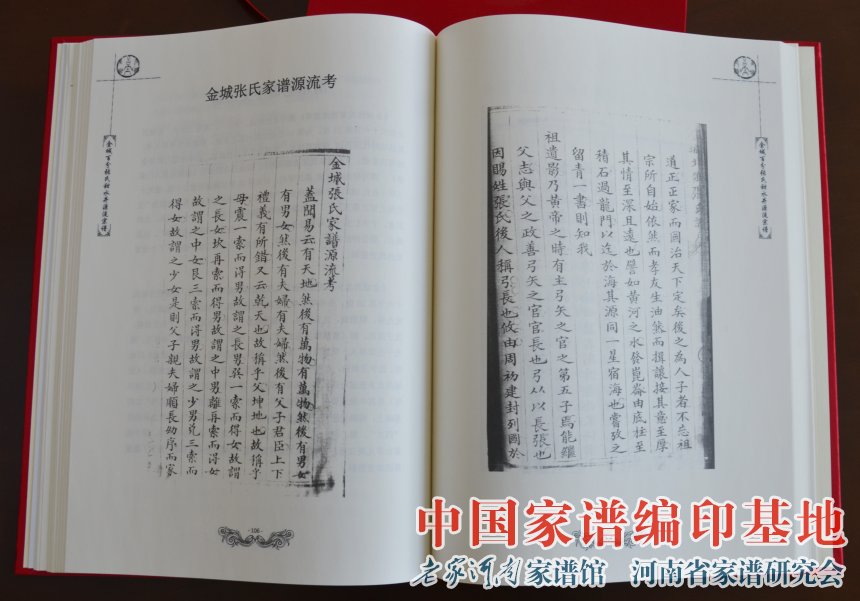 金城张氏家谱源流考
金城百分张氏甜水井源流宗谱
金城張氏家譜源流考
蓋聞易云有天地然後有萬物有萬物然後有男女
有男女然後有夫婦有夫婦然後有父子君臣上下
禮義有所錯又云乾天也故稱乎父坤地也故稱乎
母震一索而得男故謂之長男巽一索而得女故謂
之長女坎再索而得男故謂之中男離再索而得女
故謂之中女艮三索而得男故謂之少男兌三索而
得女故謂之少女是則父子親夫婦順長幼序而家
·106·
金城百分张氏甜水井源流宗谱
道正正家而國治天下定矣後之為人子者不忘祖
宗所自始依然而孝友生油然而揖讓接其意至厚
其情至深且遠也譬如黃河之水發崑崙由底柱至
積石過龍門以迄於海其源同一星宿海也嘗攷之
留青一書則知我
祖遺影乃黃帝之時有主弓矢之官之第五子焉能繼
父志與父之政善弓矢之官官長也弓从以長張也
因賜姓張氏後人稱弓長也攸由周初建封列國於
中国家谱编印基地
老家河南家谱馆 河南省家谱研究会